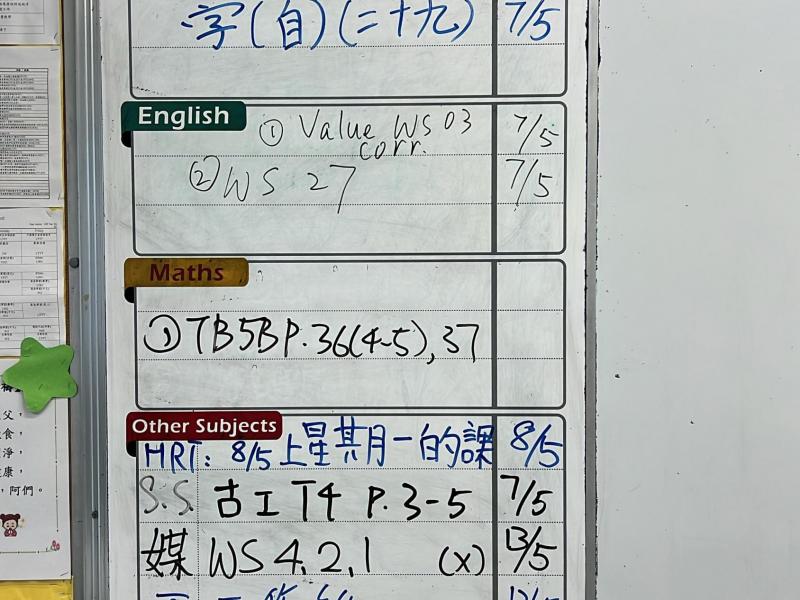 字(自)(二十九) 7/5
English
① Value WS 03 7/5
corr.
② WS 27 7/5
Maths
① TB5B P.36(4-5), 37
Other Subjects
HRT: 8/5 上星其月一白的課 8/5
S.S. 古工 T4 P.3-5 7/5
媒 WS 4.2.1 (x) 13/5
父，
食，
淨，
康，
，阿們。